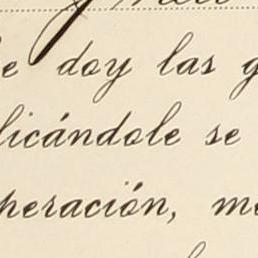 e doy las g
licándole se
peración, me